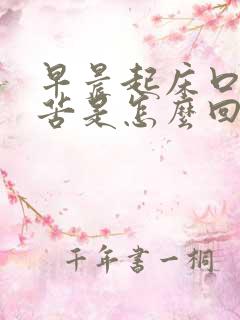 早晨起床口
苦是怎麼回
千年書一桐